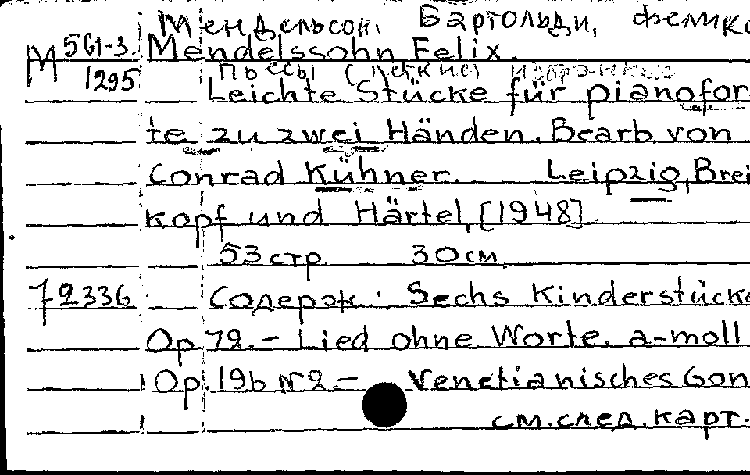 Мендельсон, Бартольди, Феликс
М 561-3. Mendelssohn Felix.
1295 Пьесы (легкие)
Leichte Stücke für pianofor
te zu zwei Händen. Bearb von
Conrad Kühner. Leipzig, Brei
kopf und Härtel, [1948]
53 стр. 30 см.
72336 Содерж: Sechs Kinderstücke
Op 72. - Lied ohne Worte. a-moll
Op. 19b №2. - Venetianisches Gon
см. след. карт.